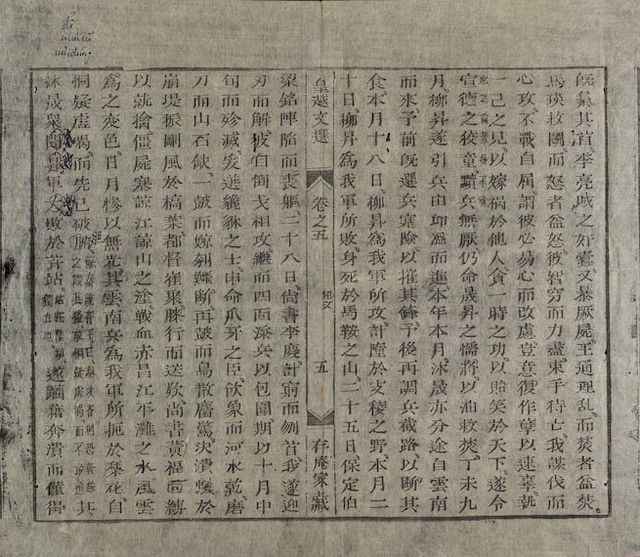 其首李亮賊之奸蠹又暴厥屍王通理亂而焚者益焚
馬瑛救鬪而怒者益怒彼智窮而力盡束手待亡我謀伐而
心攻不戰自屈謂彼必易心而改慮豈意復作孽以速辜執
一己之見以嫁禍於他人貪一時之功以貽笑於天下遂令
宣德之狡童黷兵無厭仍命晟昇之懦將以油救焚丁未九
月柳昇遂引兵由邱溫而進本年本月沐晟亦分途自雲南
而來予前旣選兵塞險以摧其鋒予後再調兵截路以斷其
食本月十八日柳昇爲我軍所攻計墮於支稜之野本月二
十日柳昇爲我軍所敗身死於馬鞍之山二十五日保定伯
皇越文選
卷之五
五
存庵家藏
梁銘陣陷而喪軀二十八日尚書李慶計窮而刎首我遂迎
刃而解彼自倒戈相攻繼而四面添兵以包圍期以十月中
旬而殄滅爰選貔貅之士申命爪牙之臣飲象而河水乾磨
刀而山石缺一鼓而鯨刳鱷斷再鼓而鳥散麏驚决潰蟻於
崩堤振剛風於槁葉都督崔聚膝行而送欵尚書黃福面縛
以就擒僵屍塞諒江諒山之途戰血赤昌江平灘之水風雲
爲之變色日月慘以無光其雲南兵爲我軍所扼於梨花自
恫疑虛喝而先已破膽其
沐晟衆聞昇軍大敗於芹站遂躪藉奔潰而僅得